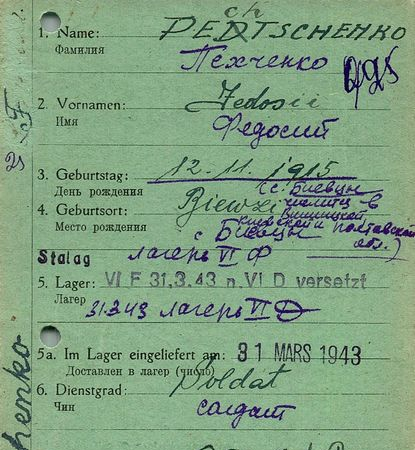 1. Name: PEchTSCHENKO
Фамилия
Пехченко
2. Vornamen: Fedosii
Имя
Федосий
3. Geburtstag: 12.11.1915
День рождения
(с. Биевцы
4. Geburtsort: Biewzi
Место рождения
Киевской и Полтавской
с Биевцы обл.)
Stalag лагерь VI Ф
5. Lager: VI F 31.3.43 n. VI D versetzt
Лагерь
31.3.43 лагерь VI D
5a. Im Lager eingeliefert am: 31 MARS 1943
Доставлен в лагерь (число)
6. Dienstgrad: Soldat
Чин
салдат
henko